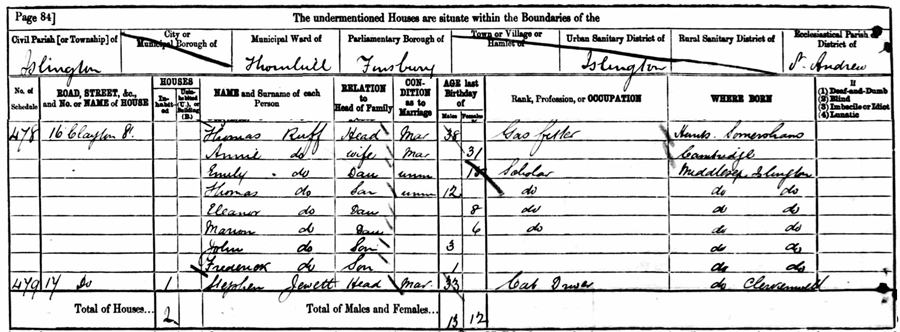 Page 84] The undermentioned Houses are situate within the Boundaries of the
Civil Parish [or Township] of Islington
City or Municipal Borough of
Municipal Ward of Thornhill
Parliamentary Borough of Finsbury
Town or Village or Hamlet of
Urban Sanitary District of Islington
Rural Sanitary District of
Ecclesiastical Parish or District of St. Andrew
No. of Schedule
ROAD, STREET, &c., and No. or NAME of HOUSE
HOUSES
Inhabited
Uninhabited (U.), or Building (B.)
NAME and Surname of each Person
RELATION to Head of Family
CONDITION as to Marriage
AGE last Birthday of
Males
Females
Rank, Profession, or OCCUPATION
WHERE BORN
If (1) Deaf-and-Dumb (2) Blind (3) Imbecile or Idiot (4) Lunatic
478 16 Clayton St. Thomas Ruff Head Mar 38 Gas fitter Hunts. Somersham
Annie do Wife Mar 31 Cambridge
Emily do Dau unm Scholar Middlesex Islington
Thomas do Son unm 12 do do do
Eleanor do Dau 8 do do do
Marion do Dau 6 do do do
John do Son 3 do do
Frederick do Son 1 do do
479 17 Do 1 Stephen Jewett Head Mar 33 Cab Driver do Clerkenwell
Total of Houses... 2 Total of Males and Females... 13 12